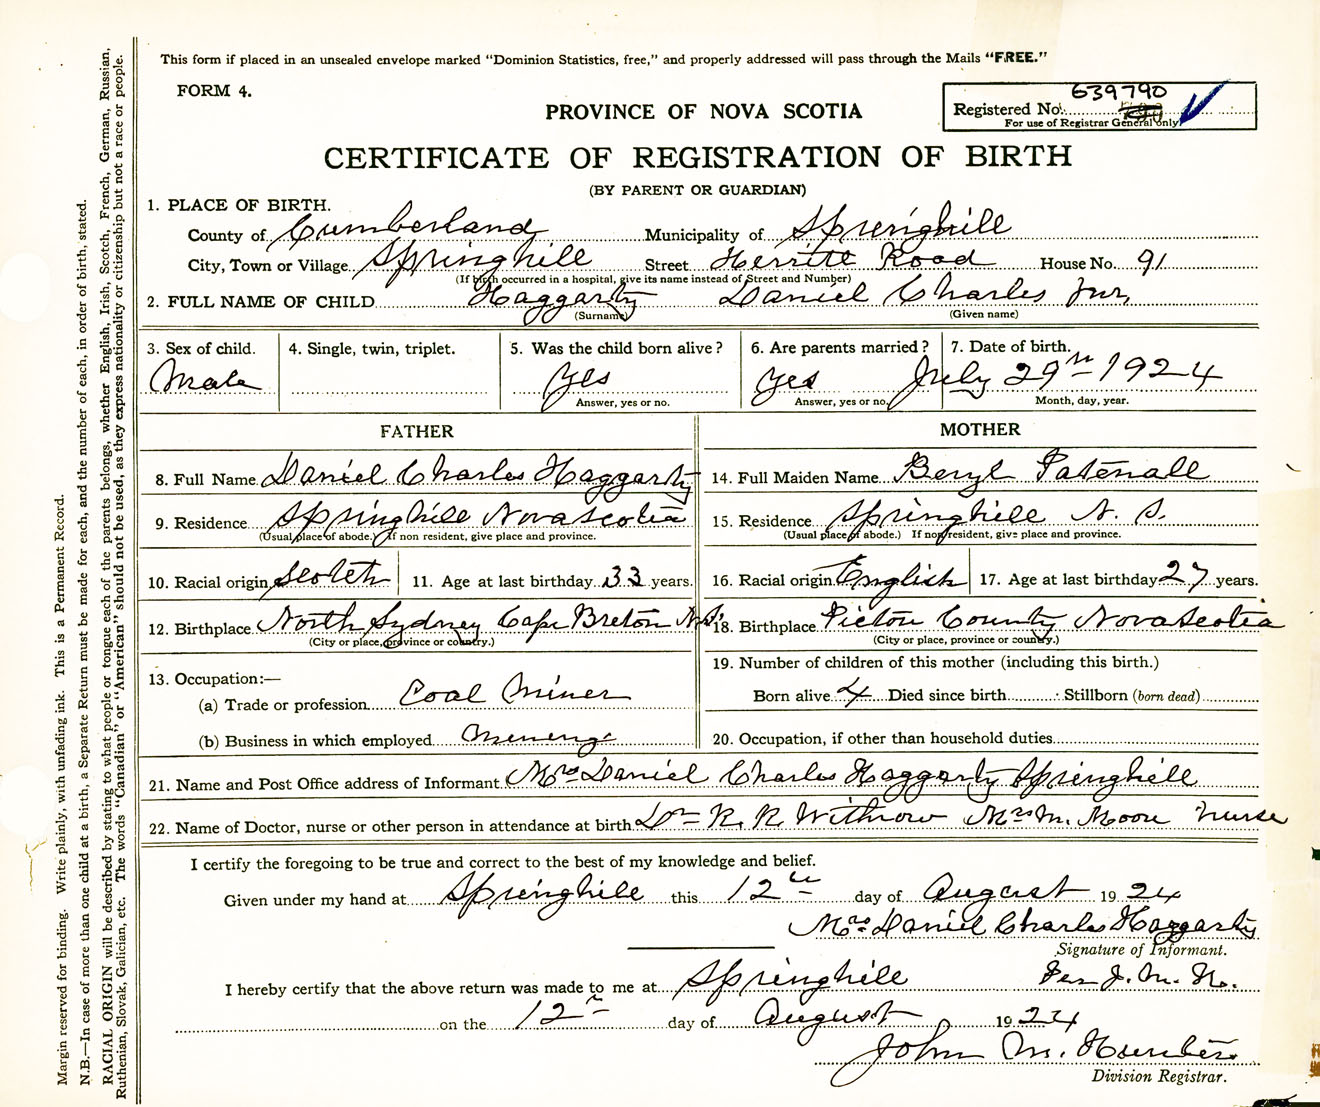 This form if placed in an unsealed envelope marked "Dominion Statistics, free," and properly addressed will pass through the Mails "FREE."
FORM 4.
639790
PROVINCE OF NOVA SCOTIA
Registered No.
For use of Registrar General only
CERTIFICATE OF REGISTRATION OF BIRTH
(BY PARENT OR GUARDIAN)
1. PLACE OF BIRTH.
County of Cumberland Municipality of Springhill
City, Town or Village Springhill Street Herritt Road House No. 91
(If birth occurred in a hospital, give its name instead of Street and Number)
2. FULL NAME OF CHILD Haggarty Daniel Charles Jnr,
(Surname) (Given name)
3. Sex of child. 4. Single, twin, triplet. 5. Was the child born alive? 6. Are parents married? 7. Date of birth.
Male Yes Yes July 29th 1924
Answer, yes or no. Answer, yes or no. Month, day, year.
FATHER MOTHER
8. Full Name Daniel Charles Haggarty 14. Full Maiden Name Beryl Patenall
9. Residence Springhill Nova Scotia 15. Residence Springhill N. S.
(Usual place of abode.) If non resident, give place and province. (Usual place of abode.) If non resident, give place and province.
10. Racial origin Scotch 11. Age at last birthday 33 years. 16. Racial origin English 17. Age at last birthday 27 years.
12. Birthplace North Sydney Cape Breton N.S. 18. Birthplace Pictou County Nova Scotia
(City or place, province or country.) (City or place, province or country.)
13. Occupation:— 19. Number of children of this mother (including this birth.)
(a) Trade or profession Coal Miner Born alive 4 Died since birth Stillborn (born dead)
(b) Business in which employed Mining 20. Occupation, if other than household duties
21. Name and Post Office address of Informant Mrs Daniel Charles Haggarty Springhill
22. Name of Doctor, nurse or other person in attendance at birth Dr R. R Withrow Mrs M. Moore Nurse
I certify the foregoing to be true and correct to the best of my knowledge and belief.
Given under my hand at Springhill this 12th day of August 1924
Mrs Daniel Charles Haggarty
Signature of Informant.
I hereby certify that the above return was made to me at Springhill Per J. M. H.
on the 12th day of August 1924
John M. Hunter
Division Registrar.
Margin reserved for binding. Write plainly, with unfading ink. This is a Permanent Record.
N.B.—In case of more than one child at a birth, a Separate Return must be made for each, and the number of each, in order of birth, stated.
RACIAL ORIGIN will be described by stating to what people or tongue each of the parents belongs, whether English, Irish, Scotch, French, German, Russian,
Ruthenian, Slovak, Galician, etc. The words "Canadian" or "American" should not be used, as they express nationality or citizenship but not a race or people.